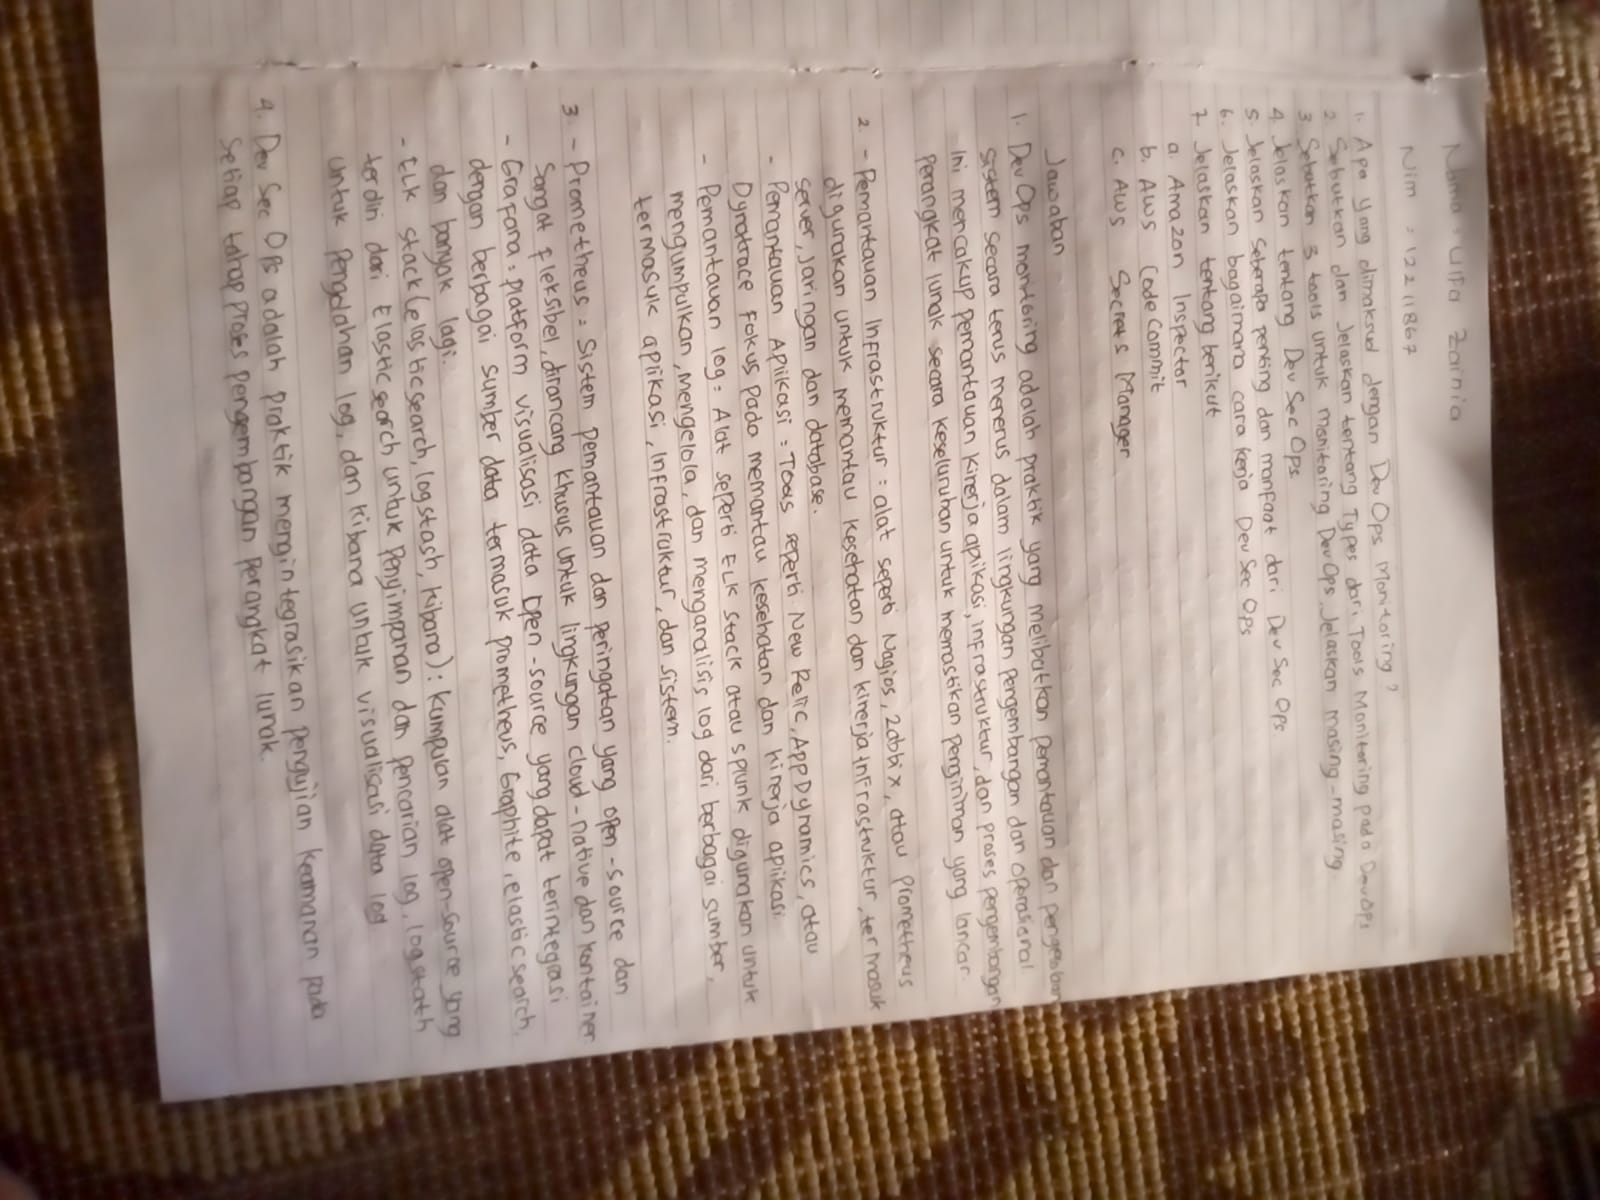 Nama : Ulfa Zainia
Nim : 12211867
1. Apa yang dimaksud dengan DevOps Monitoring?
2. Sebutkan dan Jelaskan tentang Types dari Tools Monitoring pada DevOps
3. Sebutkan 3 tools untuk monitoring DevOps. Jelaskan masing-masing
4. Jelaskan tentang Dev Sec Ops
5. Jelaskan Seberapa penting dan manfaat dari Dev Sec Ops
6. Jelaskan bagaimana cara kerja Dev Sec Ops
7. Jelaskan tentang berikut
a. Amazon Inspector
b. AWS CodeCommit
c. AWS Secrets Manager
Jawaban
1. DevOps monitoring adalah praktik yang melibatkan pemantauan dan
sistem secara terus menerus dalam lingkungan pengembangan dan operasional.
Ini mencakup pemantauan kinerja aplikasi, infrastruktur, dan proses pengembangan
perangkat lunak secara keseluruhan untuk memastikan pengiriman yang lancar.
2. - Pemantauan Infrastruktur : alat seperti Nagios, Zabbix, atau Prometheus
digunakan untuk memantau kesehatan dan kinerja infrastruktur, termasuk
server, jaringan dan database.
- Pemantauan Aplikasi : Tools seperti New Relic, AppDynamics, atau
Dynatrace fokus pada memantau kesehatan dan kinerja aplikasi.
- Pemantauan log : Alat seperti ELK Stack atau splunk digunakan untuk
mengumpulkan, mengelola, dan menganalisis log dari berbagai sumber,
termasuk aplikasi, infrastruktur, dan sistem.
3. - Prometheus : Sistem pemantauan dan peringatan yang open-source dan
Sangat fleksibel, dirancang khusus untuk lingkungan cloud-native dan kontainer
- Grafana : platform visualisasi data open-source yang dapat terintegrasi
dengan berbagai sumber data termasuk prometheus, Graphite, elasticsearch,
dan banyak lagi.
- ELK stack (elasticsearch, logstash, kibana) : kumpulan alat open-source yang
terdiri dari Elasticsearch untuk penyimpanan dan pencarian log, logstath
untuk pengolahan log, dan kibana untuk visualisasi data log
4. Dev Sec Ops adalah praktik mengintegrasikan pengujian keamanan pada
setiap tahap proses pengembangan perangkat lunak.